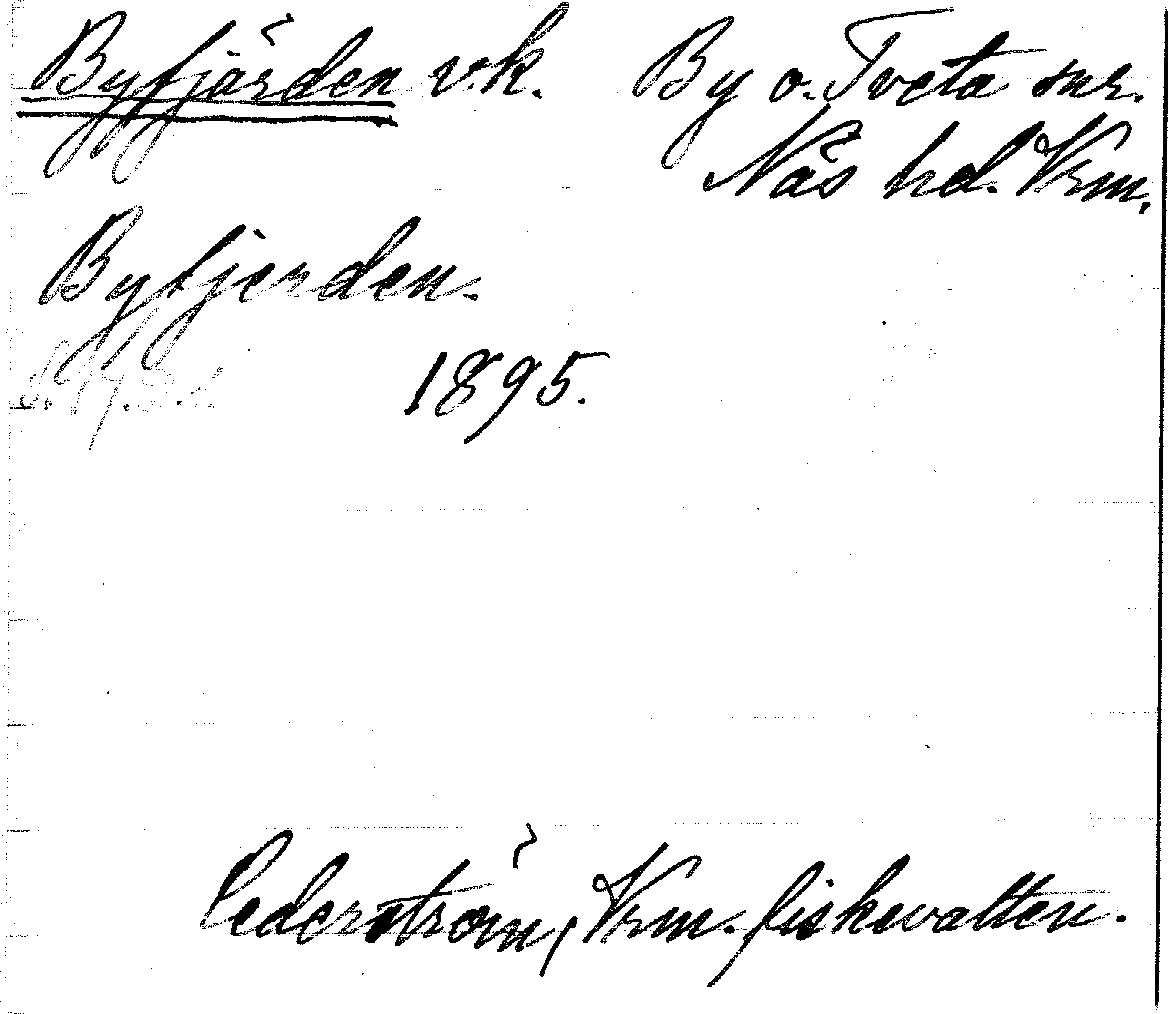 Byfjärden v.k. By o. Tveta snr.
Näs hd. Vrm.
Byfjerden.
1895.
Cederström, Vrm. fiskevatten.